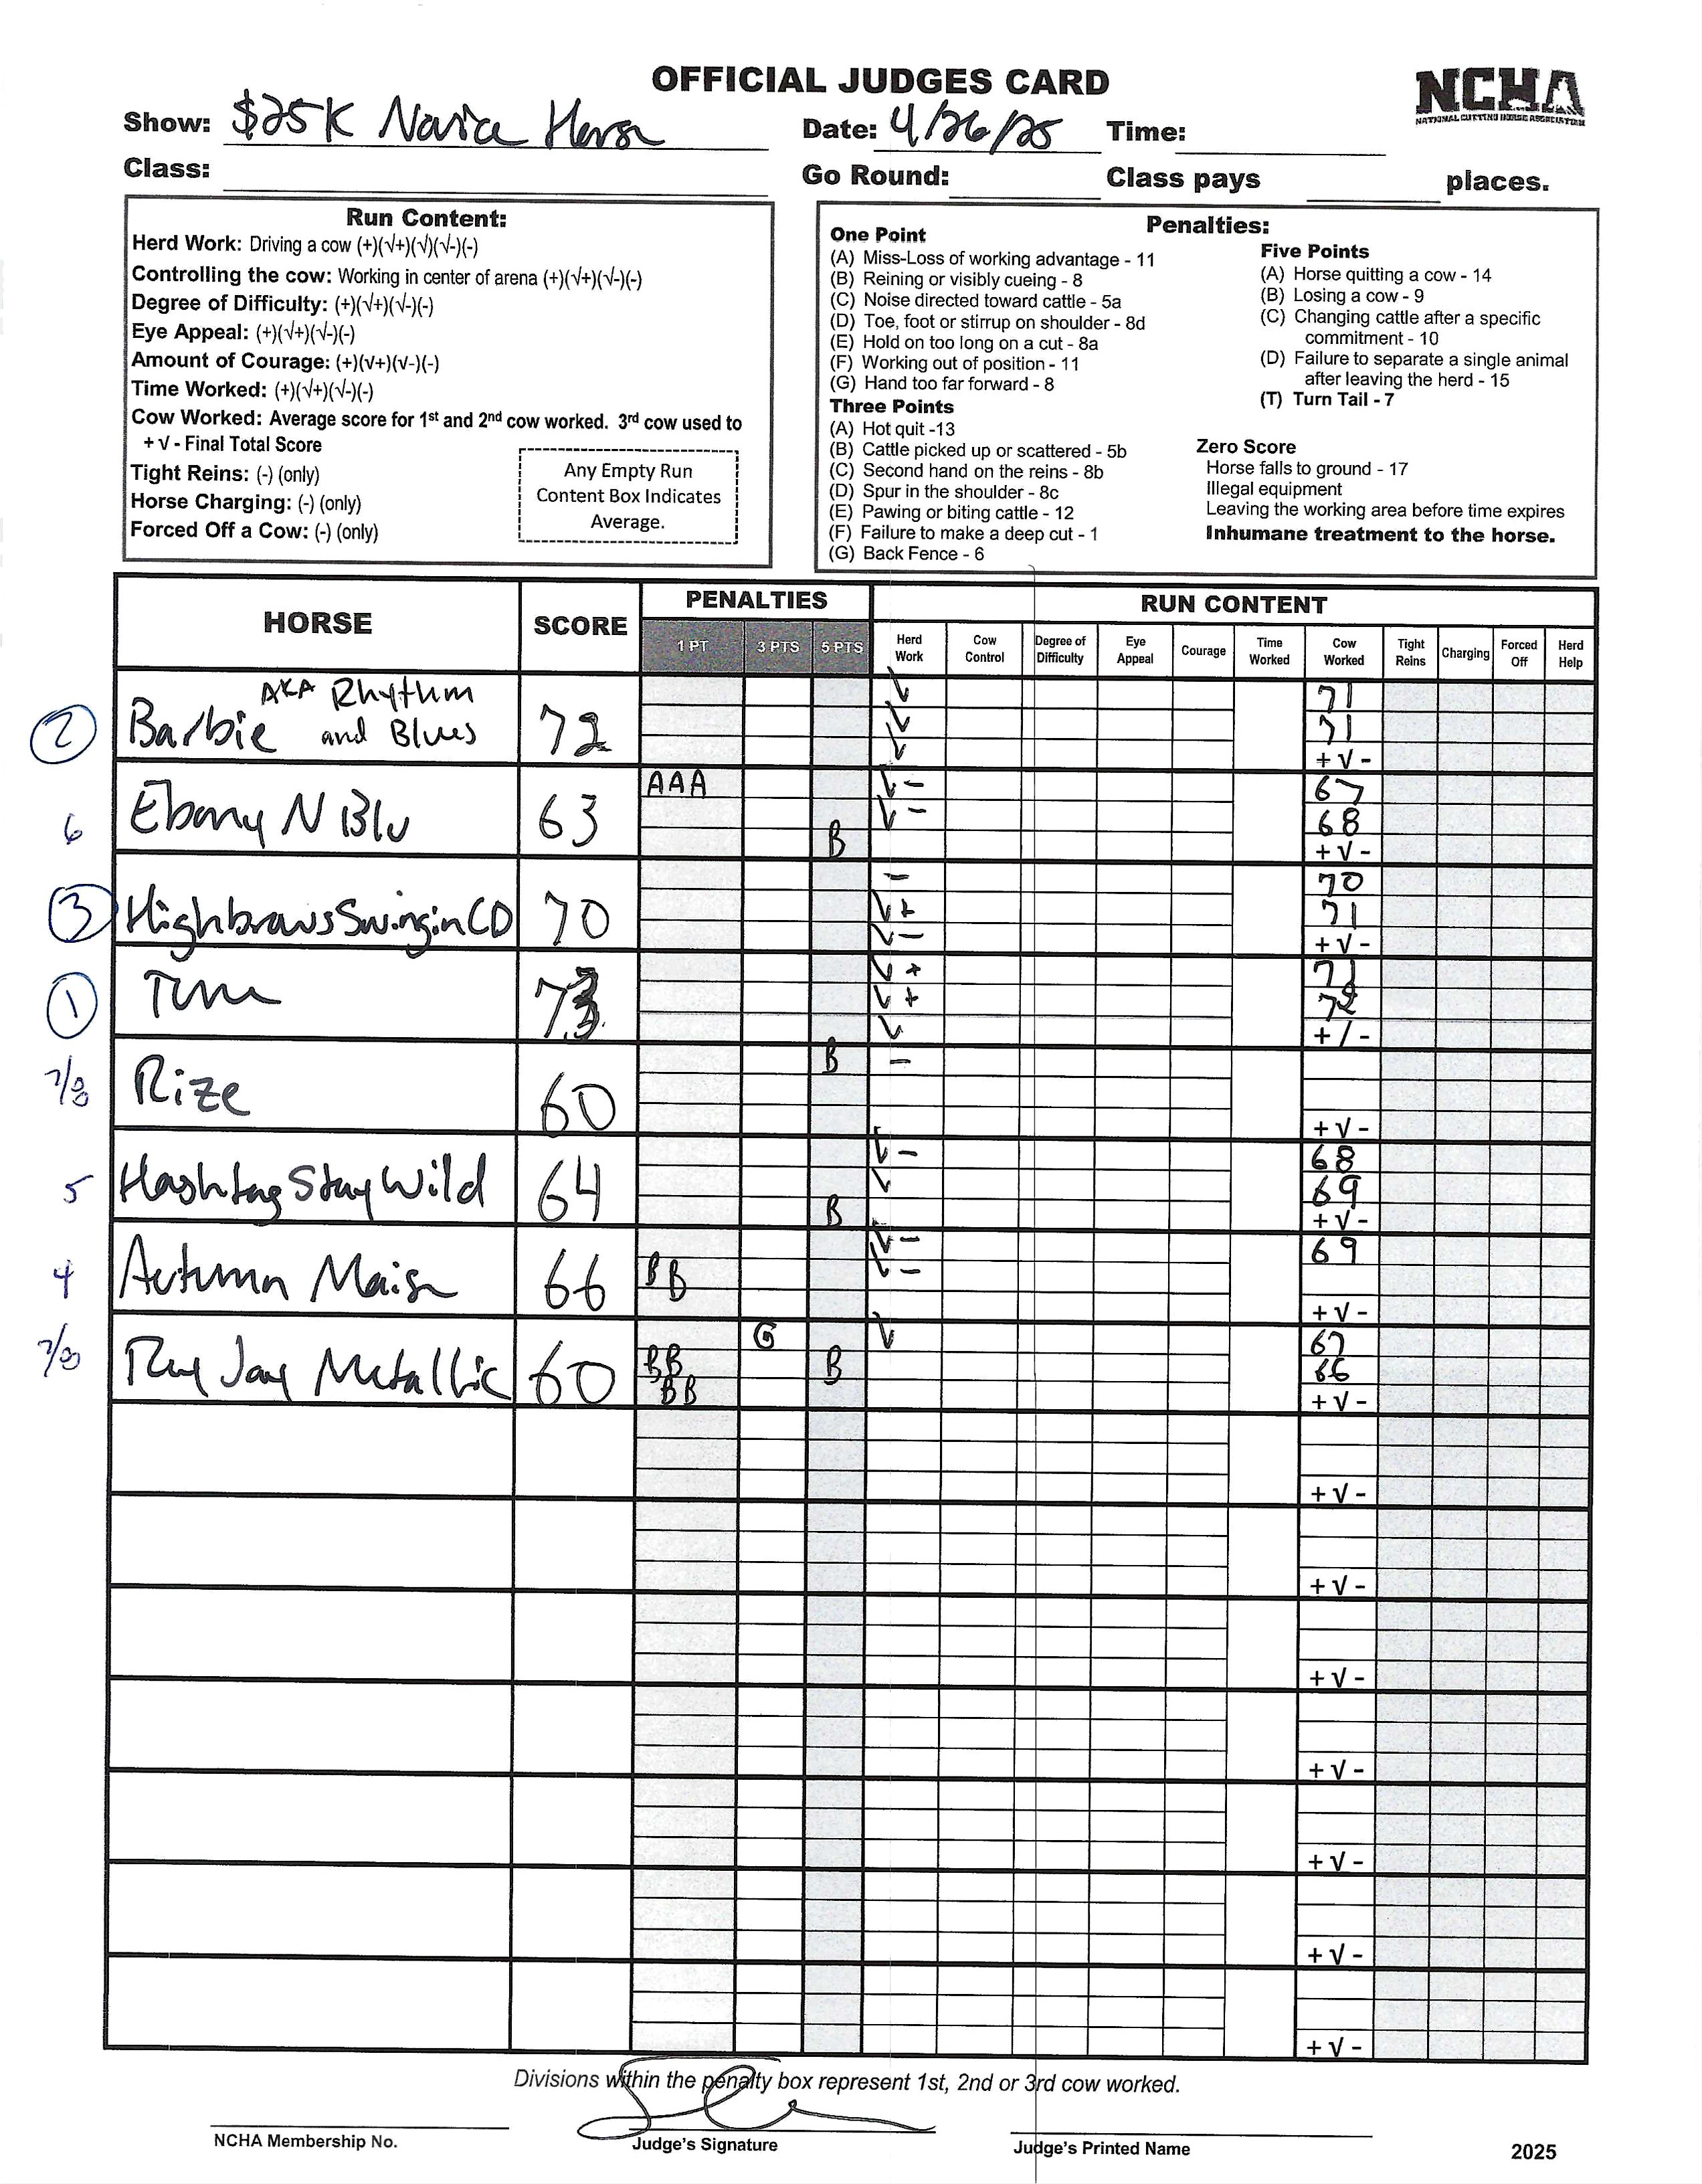 OFFICIAL JUDGES CARD
NCHA
NATIONAL CUTTING HORSE ASSOCIATION
Show: $25K Novice Horse Date: 4/26/25 Time:
Class: Go Round: Class pays places.
Run Content:
Herd Work: Driving a cow (+)(√+)(√)(√-)(-)
Controlling the cow: Working in center of arena (+)(√+)(√-)(-)
Degree of Difficulty: (+)(√+)(√-)(-)
Eye Appeal: (+)(√+)(√-)(-)
Amount of Courage: (+)(√+)(√-)(-)
Time Worked: (+)(√+)(√-)(-)
Cow Worked: Average score for 1st and 2nd cow worked. 3rd cow used to
+ √ - Final Total Score
Tight Reins: (-) (only)
Horse Charging: (-) (only)
Forced Off a Cow: (-) (only)
Any Empty Run
Content Box Indicates
Average.
Penalties:
One Point
(A) Miss-Loss of working advantage - 11
(B) Reining or visibly cueing - 8
(C) Noise directed toward cattle - 5a
(D) Toe, foot or stirrup on shoulder - 8d
(E) Hold on too long on a cut - 8a
(F) Working out of position - 11
(G) Hand too far forward - 8
Three Points
(A) Hot quit -13
(B) Cattle picked up or scattered - 5b
(C) Second hand on the reins - 8b
(D) Spur in the shoulder - 8c
(E) Pawing or biting cattle - 12
(F) Failure to make a deep cut - 1
(G) Back Fence - 6
Five Points
(A) Horse quitting a cow - 14
(B) Losing a cow - 9
(C) Changing cattle after a specific
commitment - 10
(D) Failure to separate a single animal
after leaving the herd - 15
(T) Turn Tail - 7
Zero Score
Horse falls to ground - 17
Illegal equipment
Leaving the working area before time expires
Inhumane treatment to the horse.
HORSE SCORE PENALTIES RUN CONTENT
1 PT 3 PTS 5 PTS Herd Work Cow Control Degree of Difficulty Eye Appeal Courage Time Worked Cow Worked Tight Reins Charging Forced Off Herd Help
AKA Rhythm √ 71
2 Barbie and Blues 72 √ 71
√ + √ -
AAA √ - 67
6 Ebony N Blu 63 √ - 68
B + √ -
- 70
3 HighbrowsSwinginCD 70 √+ 71
√ - + √ -
√ + 71
1 Time 73 √ + 72
√ + / -
B -
7/8 Rize 60
+ √ -
√ - 68
5 Hashtag Stay Wild 64 √ 69
B + √ -
√ - 69
4 Autumn 66 BB √ -
+ √ -
G √ 67
7/8 Ray Jay Metallic 60 BB B 66
BB + √ -
+ √ -
+ √ -
+ √ -
+ √ -
+ √ -
+ √ -
+ √ -
Divisions within the penalty box represent 1st, 2nd or 3rd cow worked.
NCHA Membership No. Judge's Signature Judge's Printed Name 2025